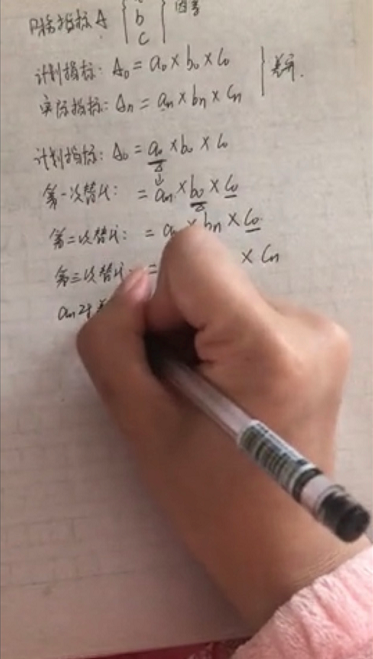 指标 A { b
c } 因素
计划指标: A₀ = a₀ × b₀ × c₀
实际指标: Aₙ = aₙ × bₙ × cₙ } 差异.
计划指标: A₀ = a₀ × b₀ × c₀
第一次替代: = aₙ × b₀ × c₀
第二次替代: = aₙ × bₙ × c₀
第三次替代: = × cₙ
aₙ对